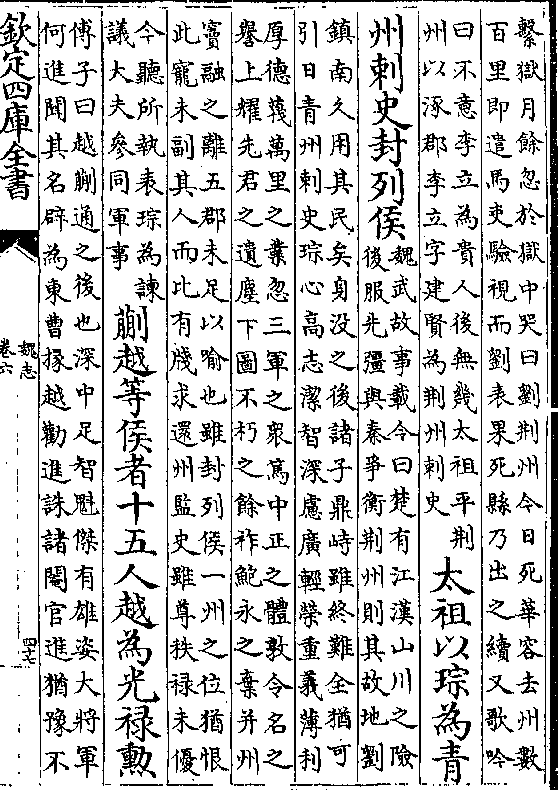 繫獄月餘忽於獄中哭曰劉荊州今日死華容去州數
百里即遣馬吏驗視而劉表果死縣乃出之續又歌吟
曰不意李立為貴人後無幾太祖平荊
州以涿郡李立字建賢為荊州刺史
太祖以琮為青
州刺史封列侯
魏武故事載令曰楚有江漢山川之險
後服先彊與秦爭衡荊州則其故地劉
鎮南久用其民矣身没之後諸子鼎峙雖終難全猶可
引日青州刺史琮心高志潔智深慮廣輕榮重義薄利
厚德蔑萬里之業忽三軍之衆篤中正之體敦令名之
譽上耀先君之遺塵下圖不朽之餘祚鮑永之棄并州
竇融之離五郡未足以喻也雖封列侯一州之位猶恨
此寵未副其人而比有牋求還州監史雖尊秩禄未優
今聽所執表琮為諫
議大夫參同軍事
蒯越等侯者十五人越為光禄勲
傅子曰越蒯通之後也深中足智魁傑有雄姿大將軍
何進聞其名辟為東曹掾越勸進誅諸閹官進猶豫不
欽定四庫全書
魏志
卷六
四十七